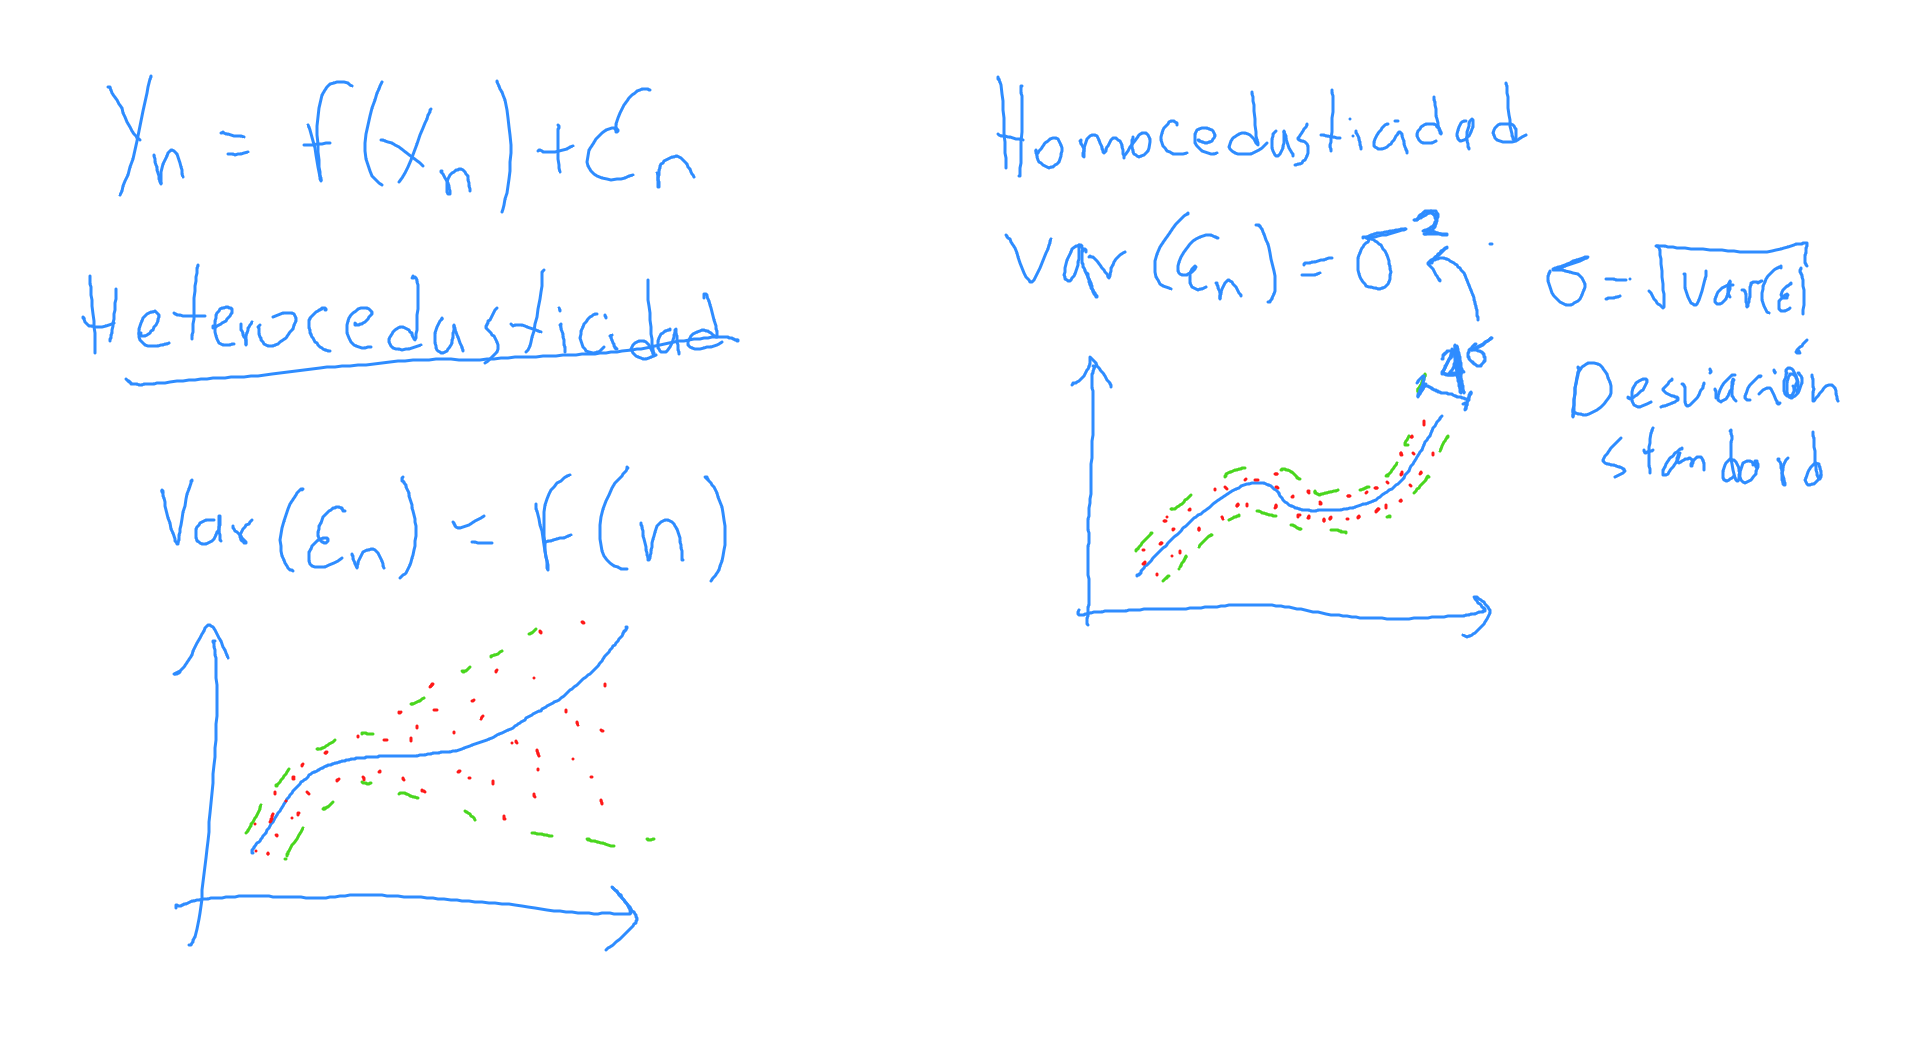 Yn = f(Xn) + Ɛn
Heterocedasticidad
Var(Ɛn) = F(n)
Homocedasticidad
Var(Ɛn) = σ²
4σ
σ = √Var(ε)
Desviación
standard